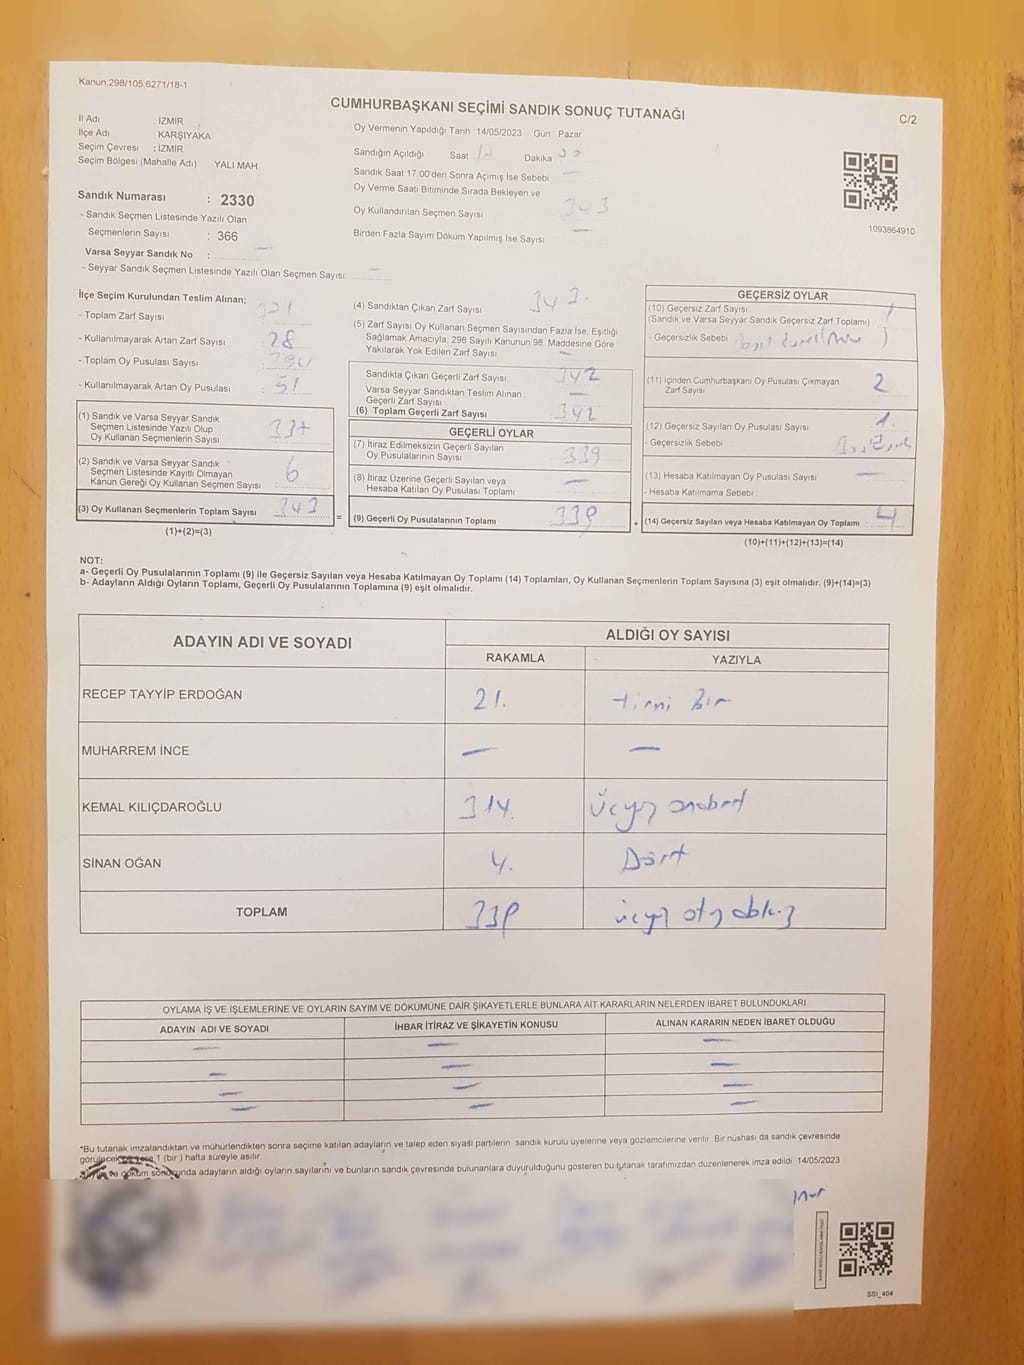 Kanun:298/105;6271/18-1
CUMHURBAŞKANI SEÇİMİ SANDIK SONUÇ TUTANAĞI
C/2
İl Adı : İZMİR
İlçe Adı : KARŞIYAKA
Seçim Çevresi : İZMİR
Seçim Bölgesi (Mahalle Adı) : YALI MAH.
Sandık Numarası : 2330
- Sandık Seçmen Listesinde Yazılı Olan
Seçmenlerin Sayısı : 366
Varsa Seyyar Sandık No : —
- Seyyar Sandık Seçmen Listesinde Yazılı Olan Seçmen Sayısı: —
Oy Vermenin Yapıldığı Tarih : 14/05/2023 Gün : Pazar
Sandığın Açıldığı Saat Dakika
Sandık Saat 17:00'den Sonra Açımış İse Sebebi —
Oy Verme Saati Bitiminde Sırada Bekleyen ve
Oy Kullandırılan Seçmen Sayısı 343
Birden Fazla Sayım Döküm Yapılmış İse Sayısı —
1093864910
İlçe Seçim Kurulundan Teslim Alınan;
- Toplam Zarf Sayısı
- Kullanılmayarak Artan Zarf Sayısı : 28
- Toplam Oy Pusulası Sayısı
- Kullanılmayarak Artan Oy Pusulası : 51
(1) Sandık ve Varsa Seyyar Sandık
Seçmen Listesinde Yazılı Olup
Oy Kullanan Seçmenlerin Sayısı 337
(2) Sandık ve Varsa Seyyar Sandık
Seçmen Listesinde Kayıtlı Olmayan
Kanun Gereği Oy Kullanan Seçmen Sayısı : 6
(3) Oy Kullanan Seçmenlerin Toplam Sayısı : 343
(1)+(2)=(3)
=
(4) Sandıktan Çıkan Zarf Sayısı 343.
(5) Zarf Sayısı Oy Kullanan Seçmen Sayısından Fazla İse, Eşitliği
Sağlamak Amacıyla, 298 Sayılı Kanunun 98. Maddesine Göre
Yakılarak Yok Edilen Zarf Sayısı —
Sandıkta Çıkan Geçerli Zarf Sayısı 342
Varsa Seyyar Sandıktan Teslim Alınan
Geçerli Zarf Sayısı —
(6) Toplam Geçerli Zarf Sayısı 342
GEÇERLİ OYLAR
(7) İtiraz Edilmeksizin Geçerli Sayılan
Oy Pusulalarının Sayısı 339
(8) İtiraz Üzerine Geçerli Sayılan veya
Hesaba Katılan Oy Pusulası Toplamı —
(9) Geçerli Oy Pusulalarının Toplamı 339
+
GEÇERSİZ OYLAR
(10) Geçersiz Zarf Sayısı 1
(Sandık ve Varsa Seyyar Sandık Geçersiz Zarf Toplamı)
- Geçersizlik Sebebi
(11) İçinden Cumhurbaşkanı Oy Pusulası Çıkmayan
Zarf Sayısı 2
(12) Geçersiz Sayılan Oy Pusulası Sayısı 1.
- Geçersizlik Sebebi
(13) Hesaba Katılmayan Oy Pusulası Sayısı —
- Hesaba Katılmama Sebebi
(14) Geçersiz Sayılan veya Hesaba Katılmayan Oy Toplamı : 4
(10)+(11)+(12)+(13)=(14)
NOT:
a- Geçerli Oy Pusulalarının Toplamı (9) ile Geçersiz Sayılan veya Hesaba Katılmayan Oy Toplamı (14) Toplamları, Oy Kullanan Seçmenlerin Toplam Sayısına (3) eşit olmalıdır. (9)+(14)=(3)
b- Adayların Aldığı Oyların Toplamı, Geçerli Oy Pusulalarının Toplamına (9) eşit olmalıdır.
ADAYIN ADI VE SOYADI
ALDIĞI OY SAYISI
RAKAMLA YAZIYLA
RECEP TAYYİP ERDOĞAN 21. Yirmi Bir
MUHARREM İNCE — —
KEMAL KILIÇDAROĞLU 314. Üçyüz ondört
SİNAN OĞAN 4. Dört
TOPLAM 339 üçyüz otuz dokuz
OYLAMA İŞ VE İŞLEMLERİNE VE OYLARIN SAYIM VE DÖKÜMÜNE DAİR ŞİKAYETLERLE BUNLARA AİT KARARLARIN NELERDEN İBARET BULUNDUKLARI
ADAYIN ADI VE SOYADI İHBAR İTİRAZ VE ŞİKAYETİN KONUSU ALINAN KARARIN NEDEN İBARET OLDUĞU
— — —
— — —
— — —
— — —
*Bu tutanak imzalandıktan ve mühürlendikten sonra seçime katılan adayların ve talep eden siyasi partilerin sandık kurulu üyelerine veya gözlemcilerine verilir. Bir nüshası da sandık çevresinde
görülecek bir yere 1 (bir ) hafta süreyle asılır.
ve döküm sonucunda adayların aldığı oyların sayılarını ve bunların sandık çevresinde bulunanlara duyurulduğunu gösteren bu tutanak tarafımızdan düzenlenerek imza edildi. 14/05/2023
SSİ_404